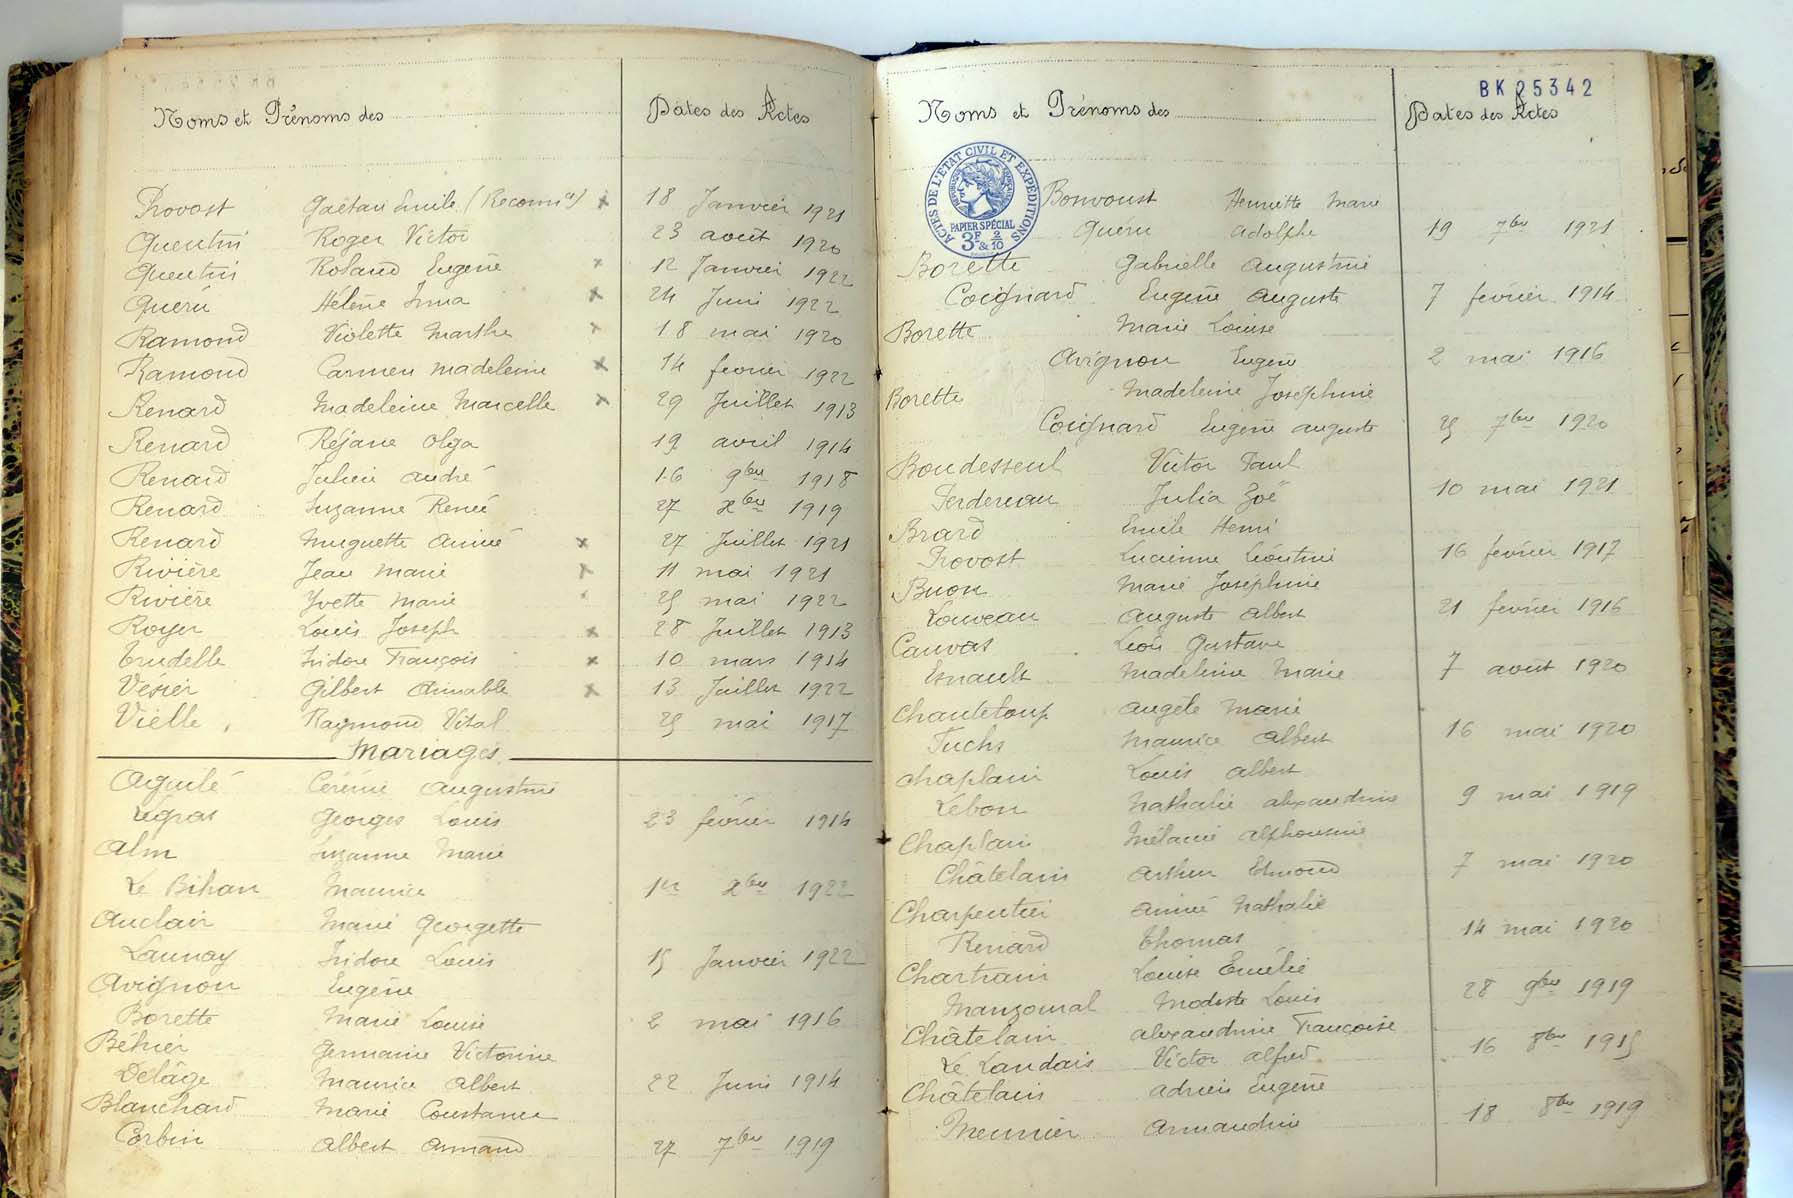 Noms et Prénoms des
Dates des Actes
Provost Gaëtan Emile (Reconn ce) x 18 Janvier 1921
Quentin Roger Victor 23 août 1920
Quentin Roland Eugène x 12 Janvier 1922
Quéru Hélène Irma x 24 Juin 1922
Ramond Violette Marthe x 18 mai 1920
Ramond Carmen Madeleine x 14 février 1922
Renard Madeleine Marcelle x 29 Juillet 1913
Renard Réjane Olga 19 avril 1914
Renard Julien André 16 9bre 1918
Renard Suzanne Renée 27 Xbre 1919
Renard Huguette Aimée x 27 Juillet 1921
Rivière Jean Marie x 11 mai 1921
Rivière Yvette Marie 25 mai 1922
Royer Louis Joseph x 28 Juillet 1913
Trudelle Isidore François x 10 mars 1914
Vésier Gilbert Aimable x 13 Juillet 1922
Vielle Raymond Vital 25 mai 1917
Mariages
Aguilé Cérénie Augustine
Legras Georges Louis 23 février 1914
Alm Suzanne Marie
Le Bihan Maurice 1er Xbre 1922
Auclair Marie Georgette
Launay Isidore Louis 15 Janvier 1922
Avignon Eugène
Borette Marie Louise 2 mai 1916
Behier Germaine Victorine
Delâge Maurice Albert 22 Juin 1914
Blanchard Marie Constance
Corbin Albert Armand 27 7bre 1919
BK 25342
Noms et Prénoms des
Dates des Actes
ACTES DE L'ETAT CIVIL ET EXPEDITIONS
PAPIER SPÉCIAL
3F & 2/10
Bonvoust Henriette Marie
Quéru Adolphe 19 7bre 1921
Borette Gabrielle Augustine
Coignard Eugène Auguste 7 février 1914
Borette Marie Louise
Avignon Eugène 2 mai 1916
Borette Madeleine Joséphine
Coignard Eugène Auguste 25 7bre 1920
Boudesseul Victor Paul
Perdereau Julia Zoë 10 mai 1921
Brard Emile Henri
Provost Lucienne Léontine 16 février 1917
Buon Marie Joséphine
Louveau Auguste Albert 21 février 1916
Cauvas Léon Gustave
Esnault Madeleine Marie 7 août 1920
Chanteloup Angèle Marie
Fuchs Maurice Albert 16 mai 1920
Chaplain Louis Albert
Lebon Nathalie Alexandrine 9 mai 1919
Chaplain Mélanie Alphonsine
Châtelain Arthur Edmond 7 mai 1920
Charpentier Aimée Nathalie
Renard Thomas 14 mai 1920
Chartrain Louise Emélie
Manzonnal Modeste Louis 28 9bre 1919
Châtelain Alexandrine Françoise
Le Landais Victor Alfred 16 8bre 1915
Châtelain Adrien Eugène
Meunier Armandine 18 8bre 1919